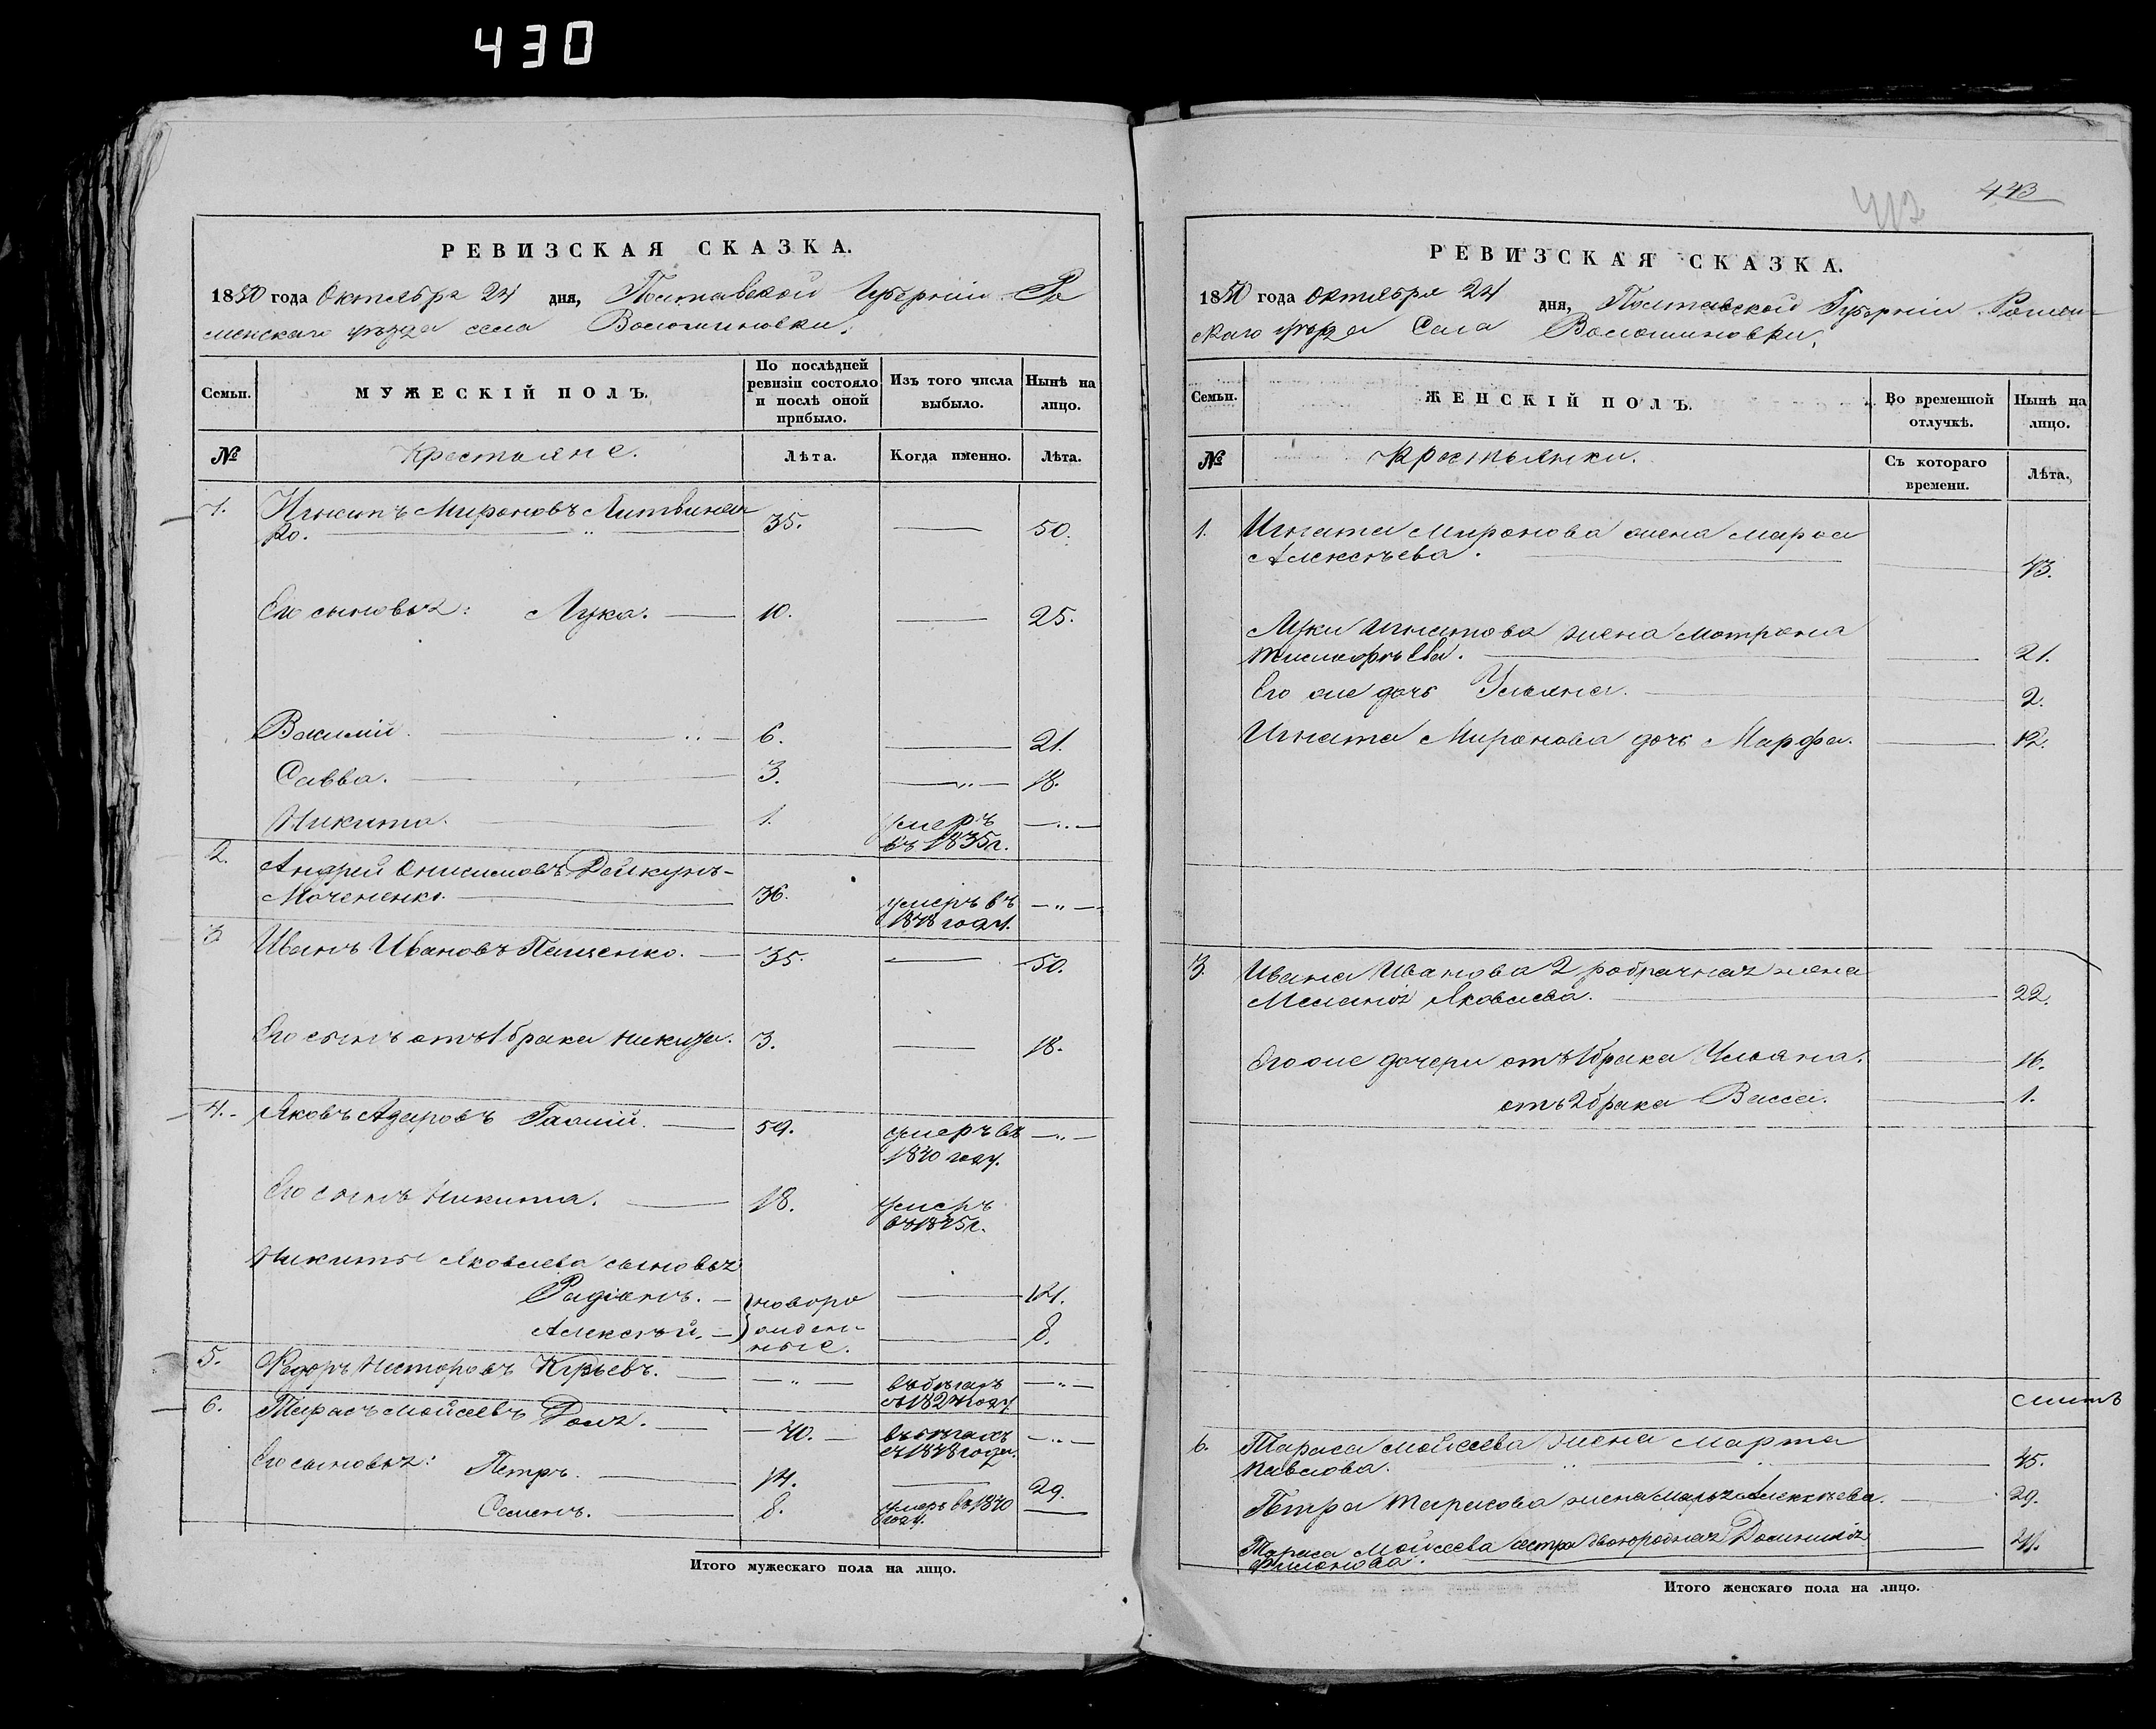 430
РЕВИЗСКАЯ СКАЗКА.
1850 года Октября 24 дня, Полтавской Губерніи Ро
менскаго уѣзда села Волошиновки.
Семьи. МУЖЕСКІЙ ПОЛЪ. По послѣдней ревизіи состояло и послѣ оной прибыло. Изъ того числа выбыло. Нынѣ на лицо.
№ Крестьяне. Лѣта. Когда именно. Лѣта.
1. Игнатъ Мироновъ Литвинен
ко. 35. 50.
Его сыновья: Лука. 10. 25.
Василій. 6. 21.
Савва. 3. 18.
Никита. 1. умеръ
въ 1835г.
2. Андрей Онисимовъ
36. умеръ въ
1848 году.
3. Иванъ Ивановъ Пащенко. 35. 50.
Его сынъ отъ 1 брака 3. 18.
4. Яковъ Азаровъ 59. умеръ въ
1840 году.
Его сынъ Никита. 18. умеръ
Никиты Яковлева сыновья
Радіонъ. новоро
Алексѣй. жден- 8.
ные.
5. Федоръ Несторовъ Юрьевъ. въ бѣгахъ
6. Тарасъ Мойсеевъ 40. въ бѣгахъ
съ 1848 года.
Его сыновья: Петръ. 14. 29.
Семенъ. 8. умеръ въ 1840
году.
Итого мужескаго пола на лицо.
443
РЕВИЗСКАЯ СКАЗКА.
1850 года Октября 24 дня, Полтавской Губерніи Ромен-
скаго уѣзда Села Волошиновки.
Семьи. ЖЕНСКІЙ ПОЛЪ. Во временной отлучкѣ. Нынѣ на лицо.
№ Крестьянки. Съ котораго времени. Лѣта.
1. Игната Миронова жена
Алексѣева. 43.
Луки Игнатова жена Мотрона
21.
Его же дочь Ульяна. 2.
Игната Миронова дочь Марфа. 12.
3. Ивана Иванова 2 жена
Меланія Яковлева. 22.
Его же дочери отъ 1 брака Ульяна. 16.
отъ 2 брака Васса. 1.
6. Тараса Мойсеева жена Марта
Павлова. 45.
Петра Тарасова жена Марья Алексѣева. 29.
Тараса Мойсеева сестра двоюродная
Филонова.
Итого женскаго пола на лицо.